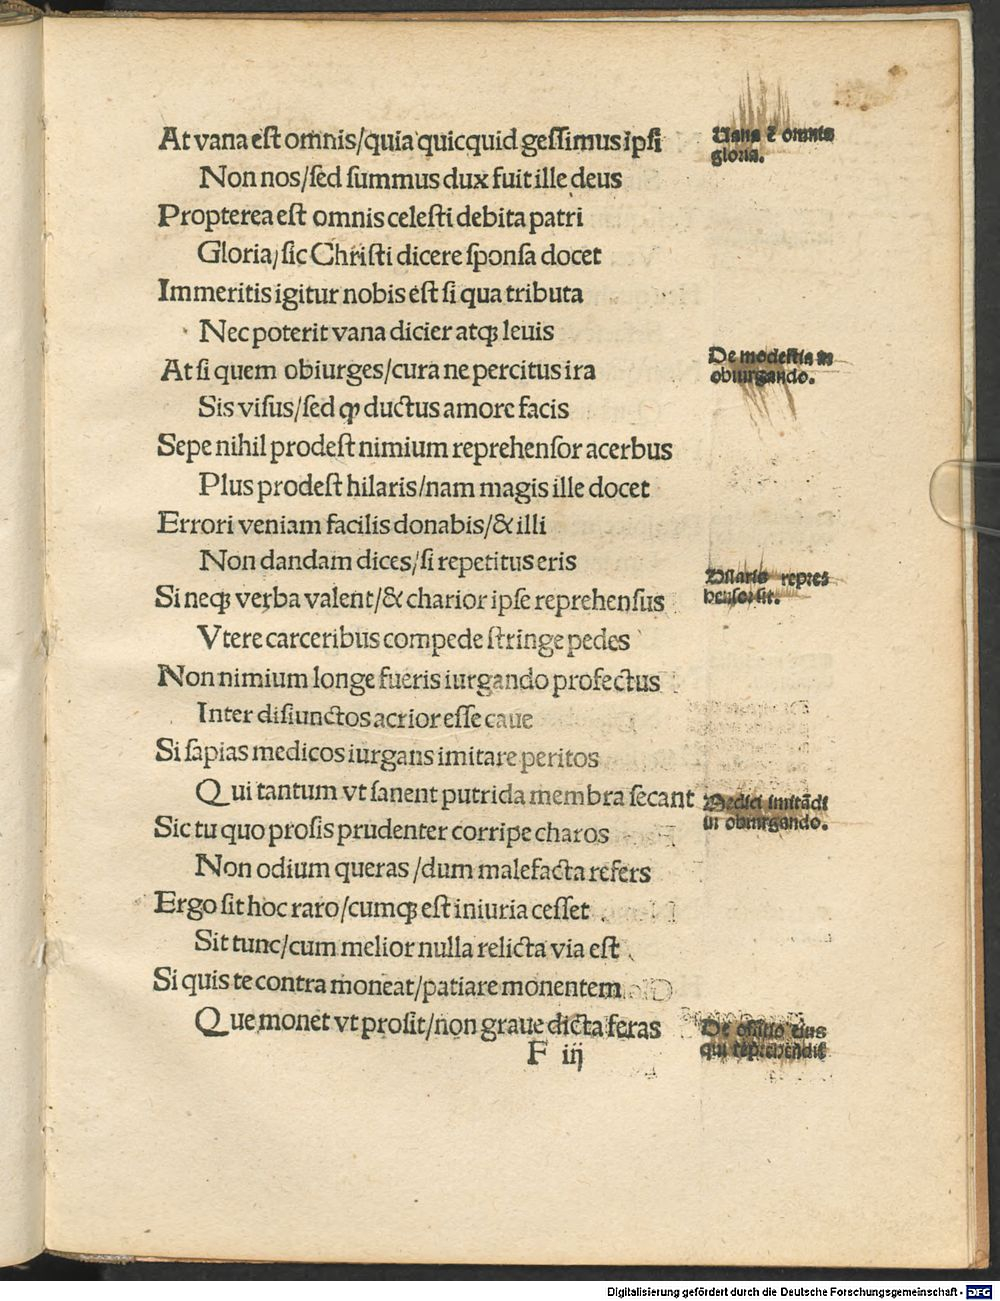 At vana est omnis/quia quicquid gessimus ipsi
Non nos/sed summus dux fuit ille deus
Propterea est omnis celesti debita patri
Gloria/sic Christi dicere sponsa docet
Immeritis igitur nobis est si qua tributa
Nec poterit vana dicier atqꝫ leuis
At si quem obiurges/cura ne percitus ira
Sis visus/sed ꝙ ductus amore facis
Sepe nihil prodest nimium reprehensor acerbus
Plus prodest hilaris/nam magis ille docet
Errori veniam facilis donabis/& illi
Non dandam dices/si repetitus eris
Si neqꝫ verba valent/& charior ipse reprehensus
Vtere carceribus compede stringe pedes
Non nimium longe fueris iurgando profectus
Inter disiunctos acrior esse caue
Si sapias medicos iurgans imitare peritos
Qui tantum vt sanent putrida membra secant
Sic tu quo prosis prudenter corripe charos
Non odium queras/dum malefacta refers
Ergo sit hoc raro/cumqꝫ est iniuria cesset
Sit tunc/cum melior nulla relicta via est
Si quis te contra moneat/patiare monentem
Que monet vt prosit/non graue dicta feras
F iij
Uana ē omnis
gloria.
De modestia in
obiurgando.
Hilaris repre⸗
hensor sit.
Medici imitādi
in obiurgando.
De officio eius
qui reprehendit
Digitalisierung gefördert durch die Deutsche Forschungsgemeinschaft - DFG